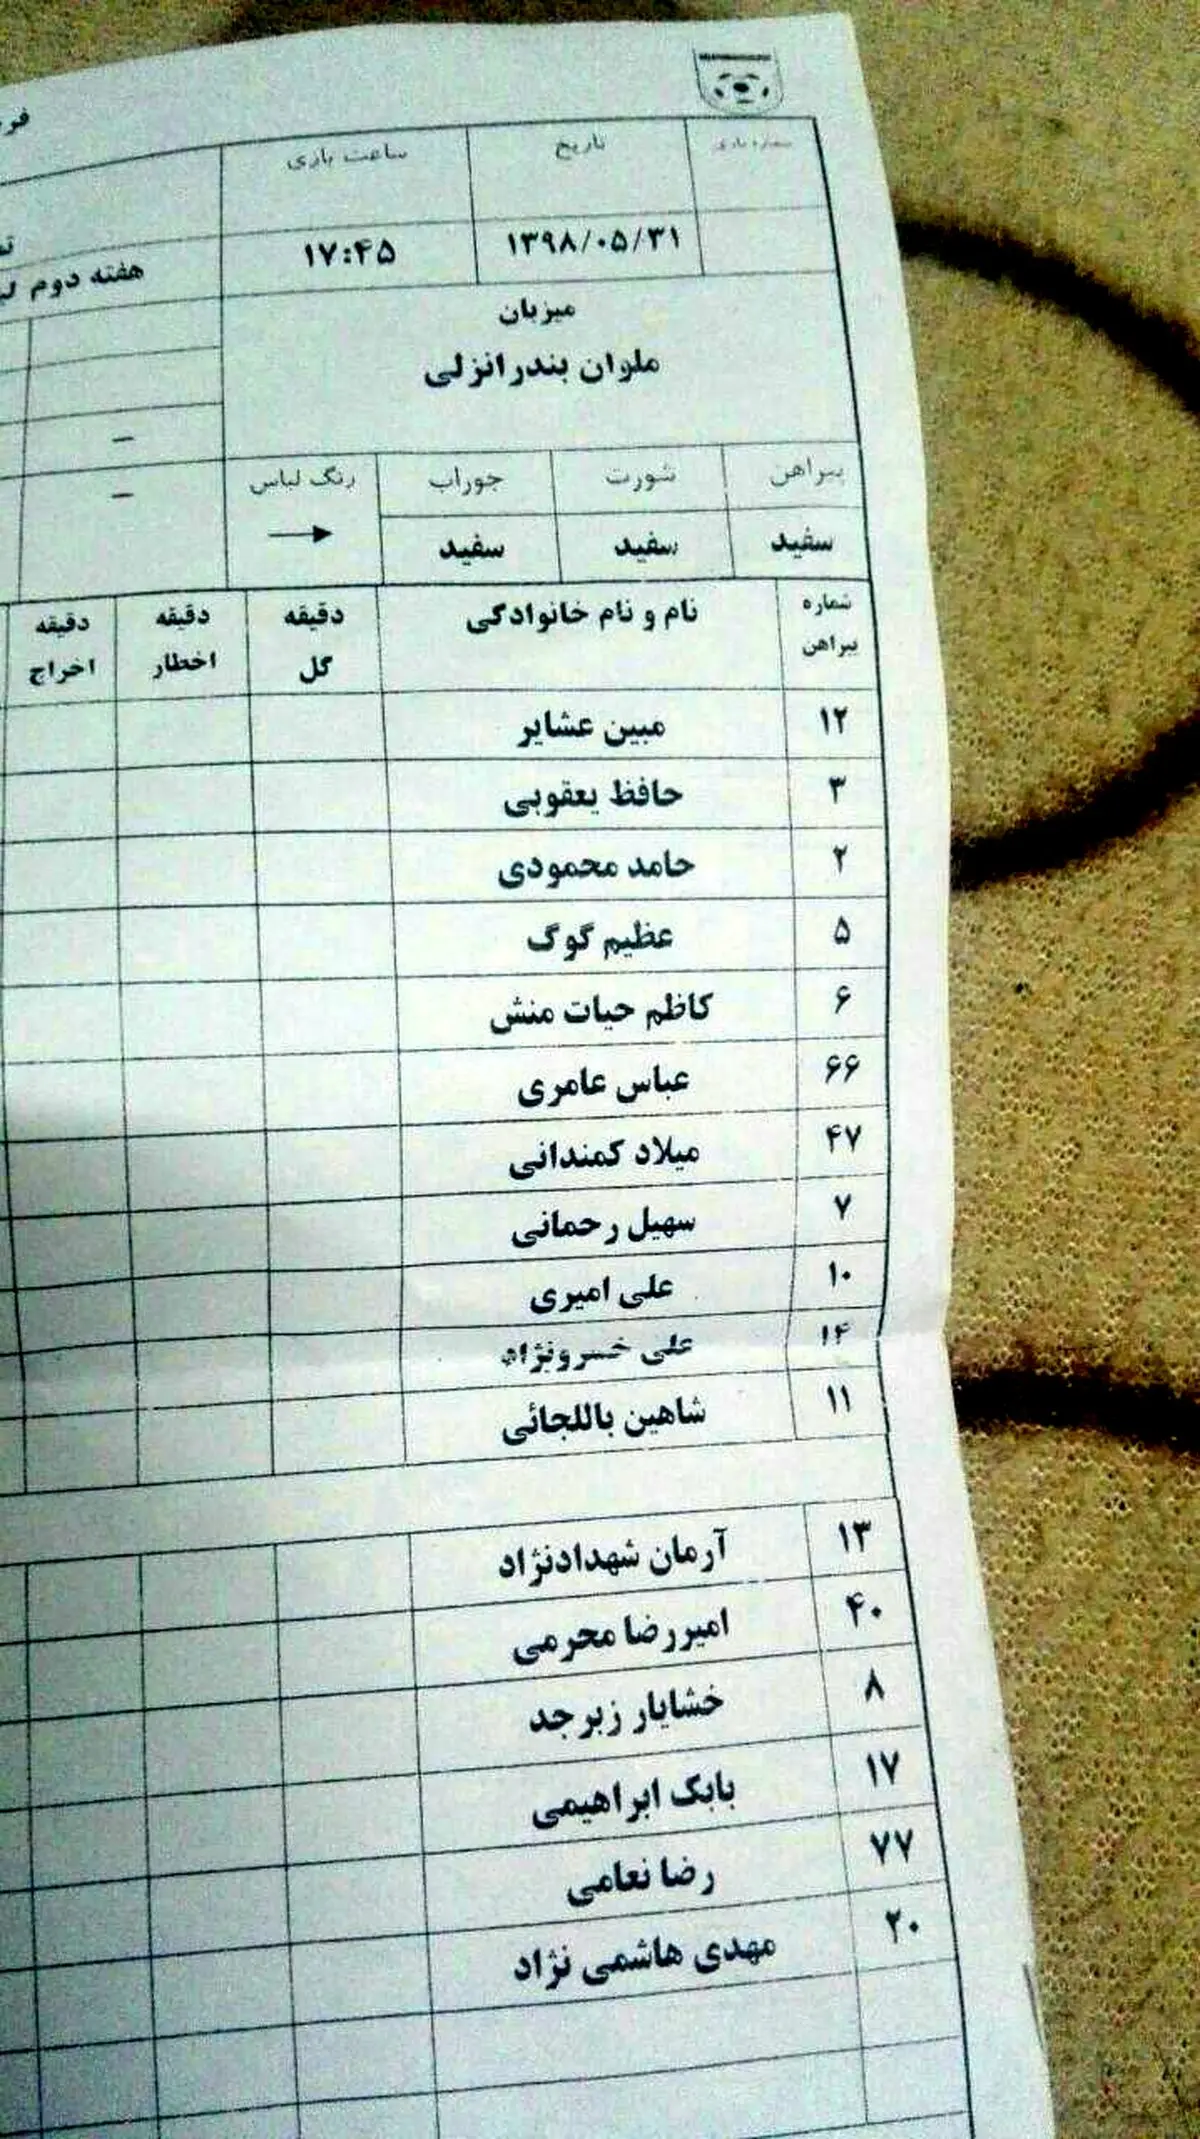 شماره بازی تاریخ ساعت بازی
۱۳۹۸/۰۵/۳۱ ۱۷:۴۵
هفته دوم
میزبان
ملوان بندرانزلی
پیراهن شورت جوراب رنگ لباس
سفید سفید سفید →
شماره پیراهن نام و نام خانوادگی دقیقه گل دقیقه اخطار دقیقه اخراج
۱۲ مبین عشایر
۳ حافظ یعقوبی
۲ حامد محمودی
۵ عظیم گوگ
۶ کاظم حیات منش
۶۶ عباس عامری
۴۷ میلاد کمندانی
۷ سهیل رحمانی
۱۰ علی امیری
۱۴ علی خسرونژاد
۱۱ شاهین باللجائی
۱۳ آرمان شهدادنژاد
۴۰ امیررضا محرمی
۸ خشایار زبرجد
۱۷ بابک ابراهیمی
۷۷ رضا نعامی
۲۰ مهدی هاشمی نژاد